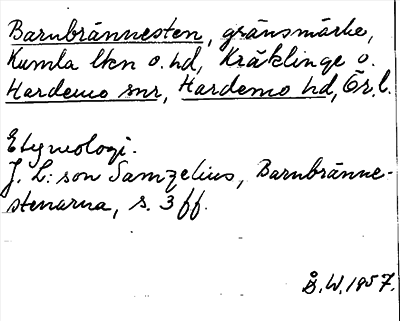 Barnbrännesten, gränsmärke,
Kumla lkn o. hd, Kräklinge o.
Hardemo snr, Hardemo hd, Ör. l.
Etymologi.
J. L:son Samzelius, Barnbränne-
stenarna, s. 3 ff.
G. W. 1957.